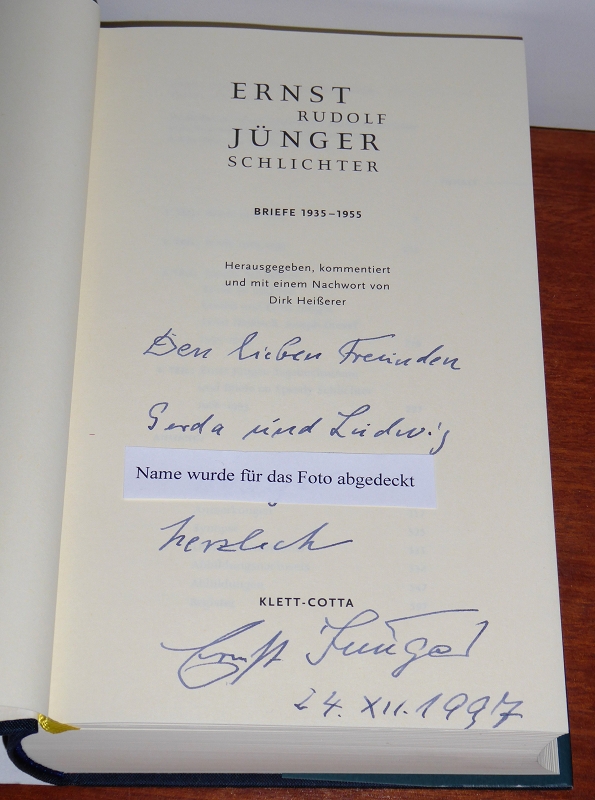 ERNST
RUDOLF
JÜNGER
SCHLICHTER
BRIEFE 1935–1955
Herausgegeben, kommentiert
und mit einem Nachwort von
Dirk Heißerer
Den lieben Freunden
Gerda und Ludwig
Name wurde für das Foto abgedeckt
herzlich
KLETT-COTTA
Ernst Jünger
24. XII. 1997